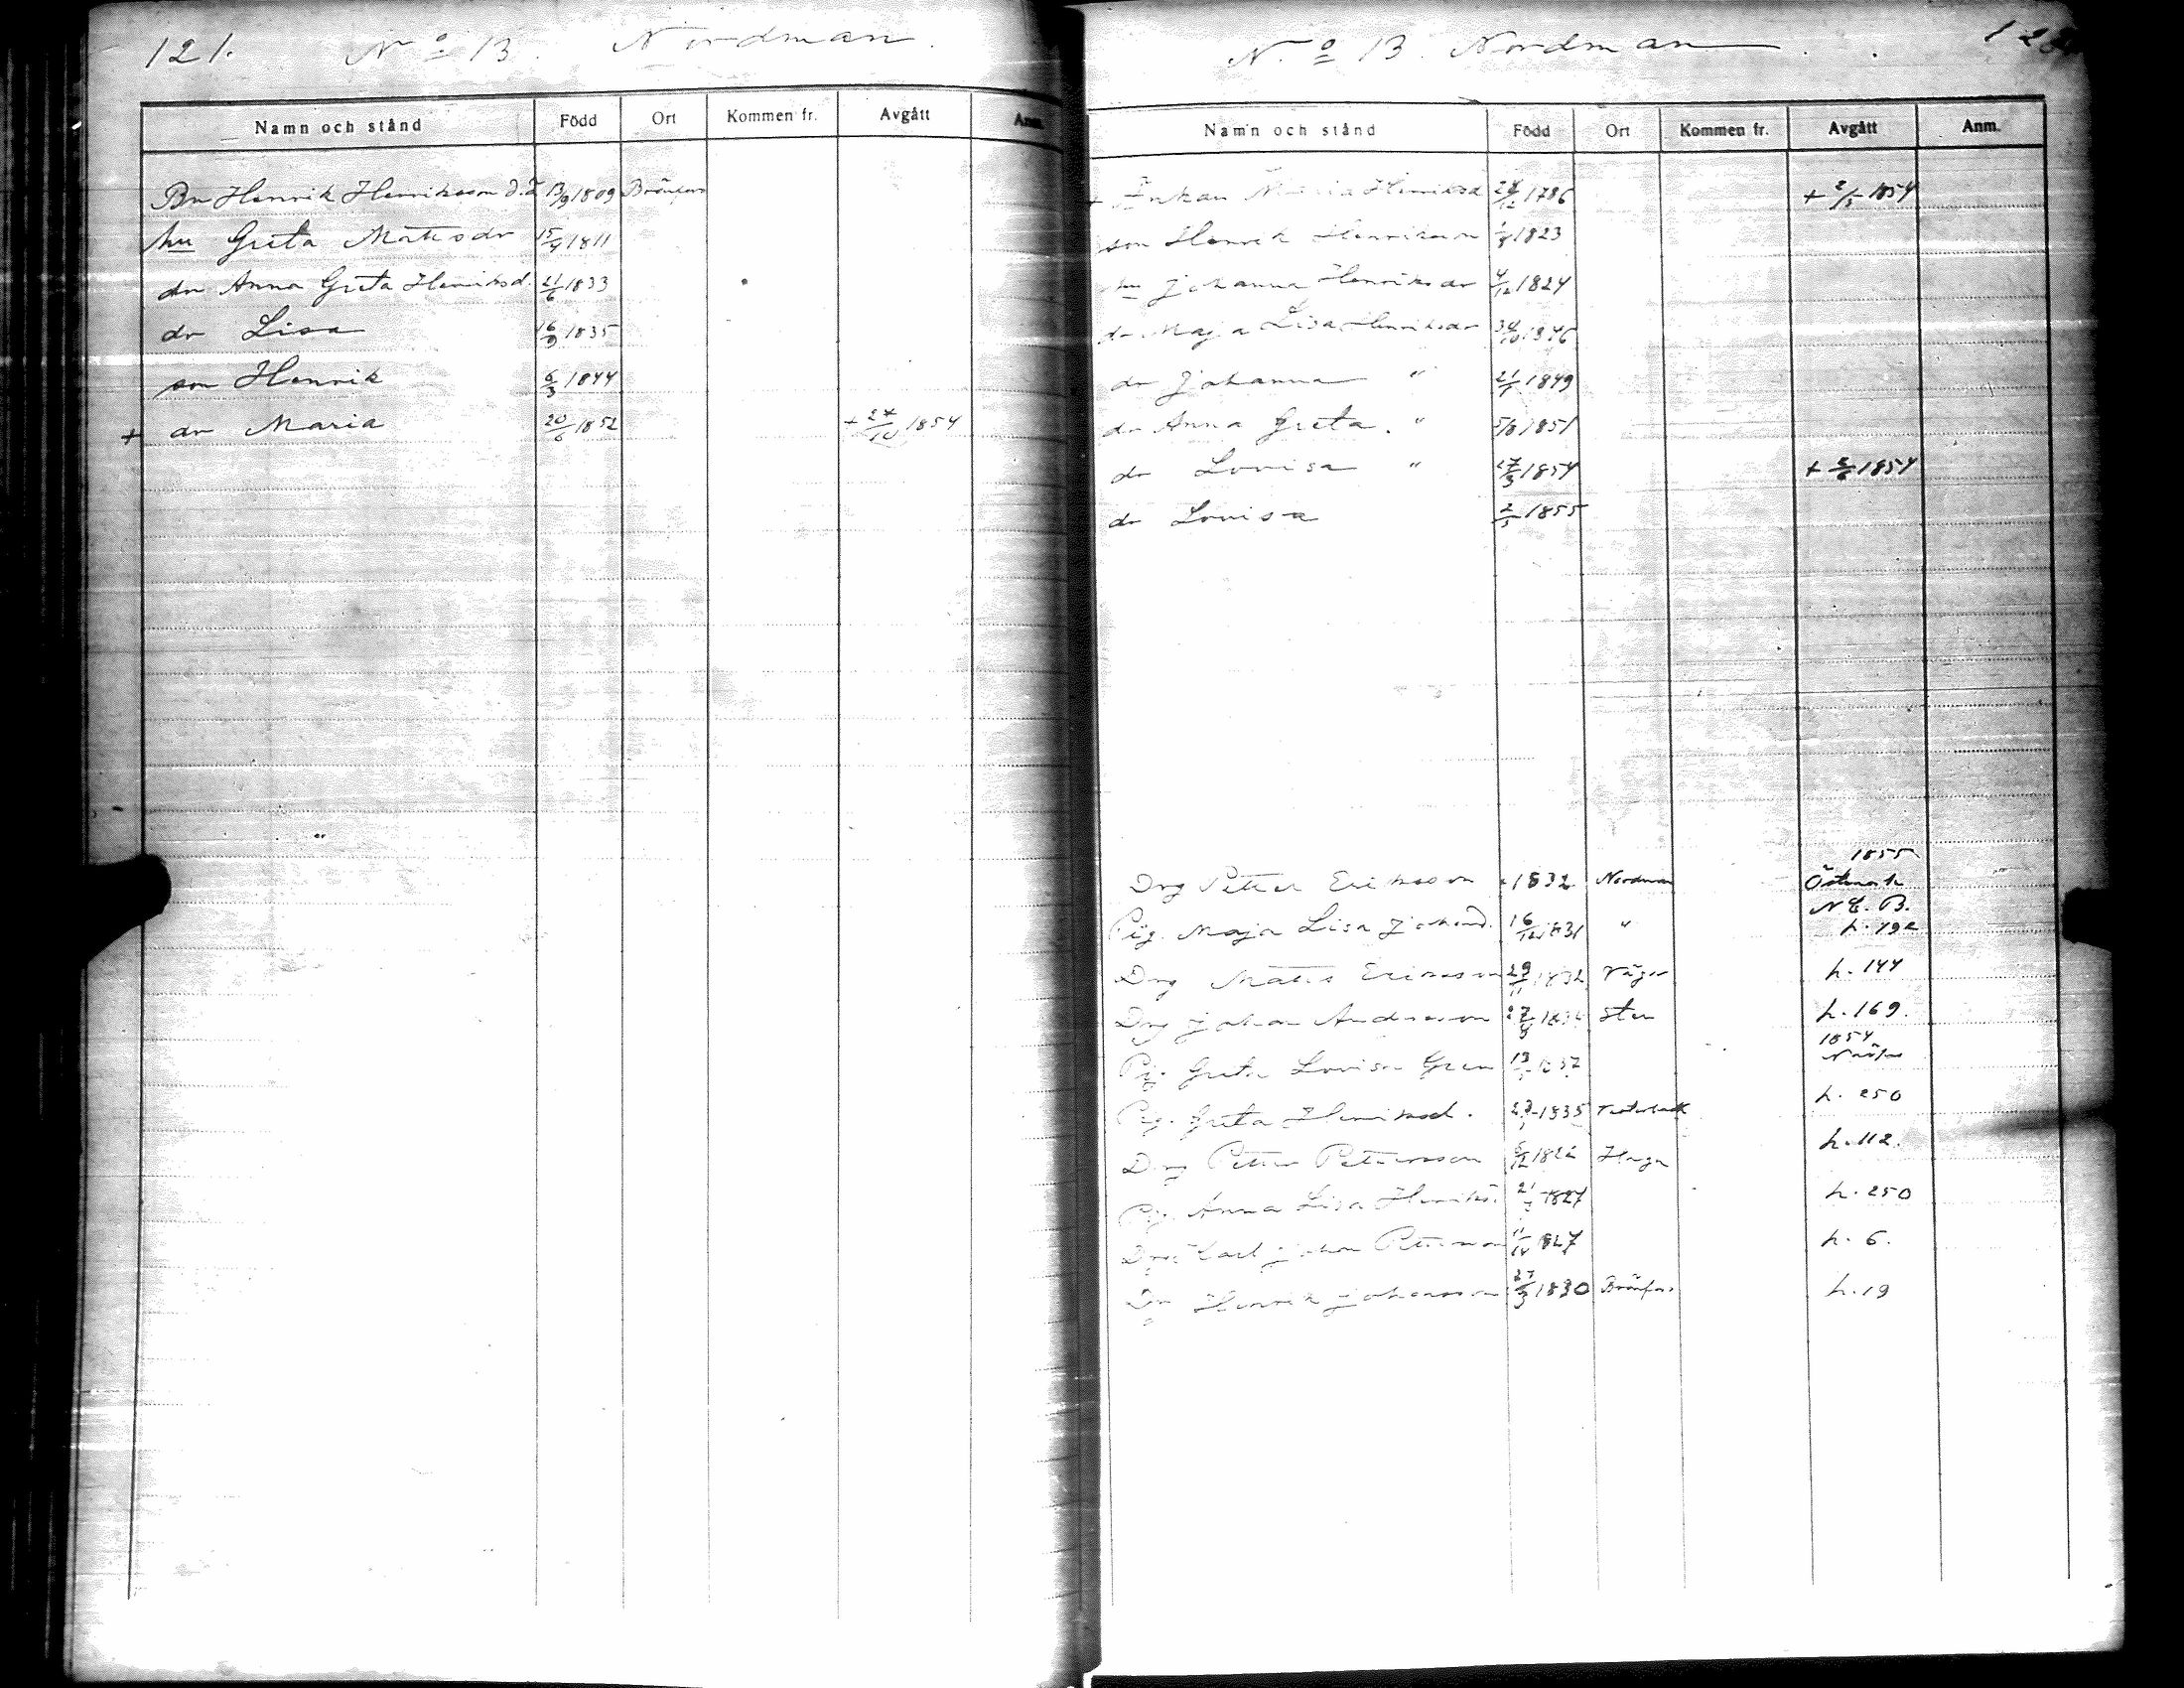 121. No 13. Nordman.
Namn och stånd Född Ort Kommen fr. Avgått Anm.
Bn Henrik Henriksson d.ä 13/9 1809 Bränfors
hu Greta Matsdr 15/9 1811
dr Anna Greta Henriksd. 21/6 1833
dr Lisa 16/9 1835
son Henrik 6/3 1844
+ dr Maria 20/6 1852 + 24/10 1854
No 13. Nordman
Namn och stånd Född Ort Kommen fr. Avgått Anm.
+ Enkan Maria Henriksd 1786 + 2/5 1854
son Henrik Henriksson 1823
hu Johanna Henriksdr 4/12 1824
dr Maja Lisa Henriksdr 1846
dr Johanna " 1849
dr Anna Greta. " 5/8 1851
dr Lovisa " 27/3 1854 + 5/6 1854
dr Lovisa 2/5 1855
1855
Drg Petter Eriksson 1832 Nordman Östmark
N.C.B.
Pig. Maja Lisa Johansd. 16/12 1831 " h. 192
Drg Mats Eriksson 29/11 1832 h. 144
Drg Johan Andersson Sten h. 169.
1854
Pig. Greta Lovisa Gren
Pig. Greta Henriksd. 1835 h. 250
Drg Petter Petersson Haga h. 112.
Pig. Anna Lisa Henriksd. 1827 h. 250
Drg Carl Johan Petersson 1827 h. 6.
Dr Henrik Johansson 27/3 1830 Bränfors h. 19